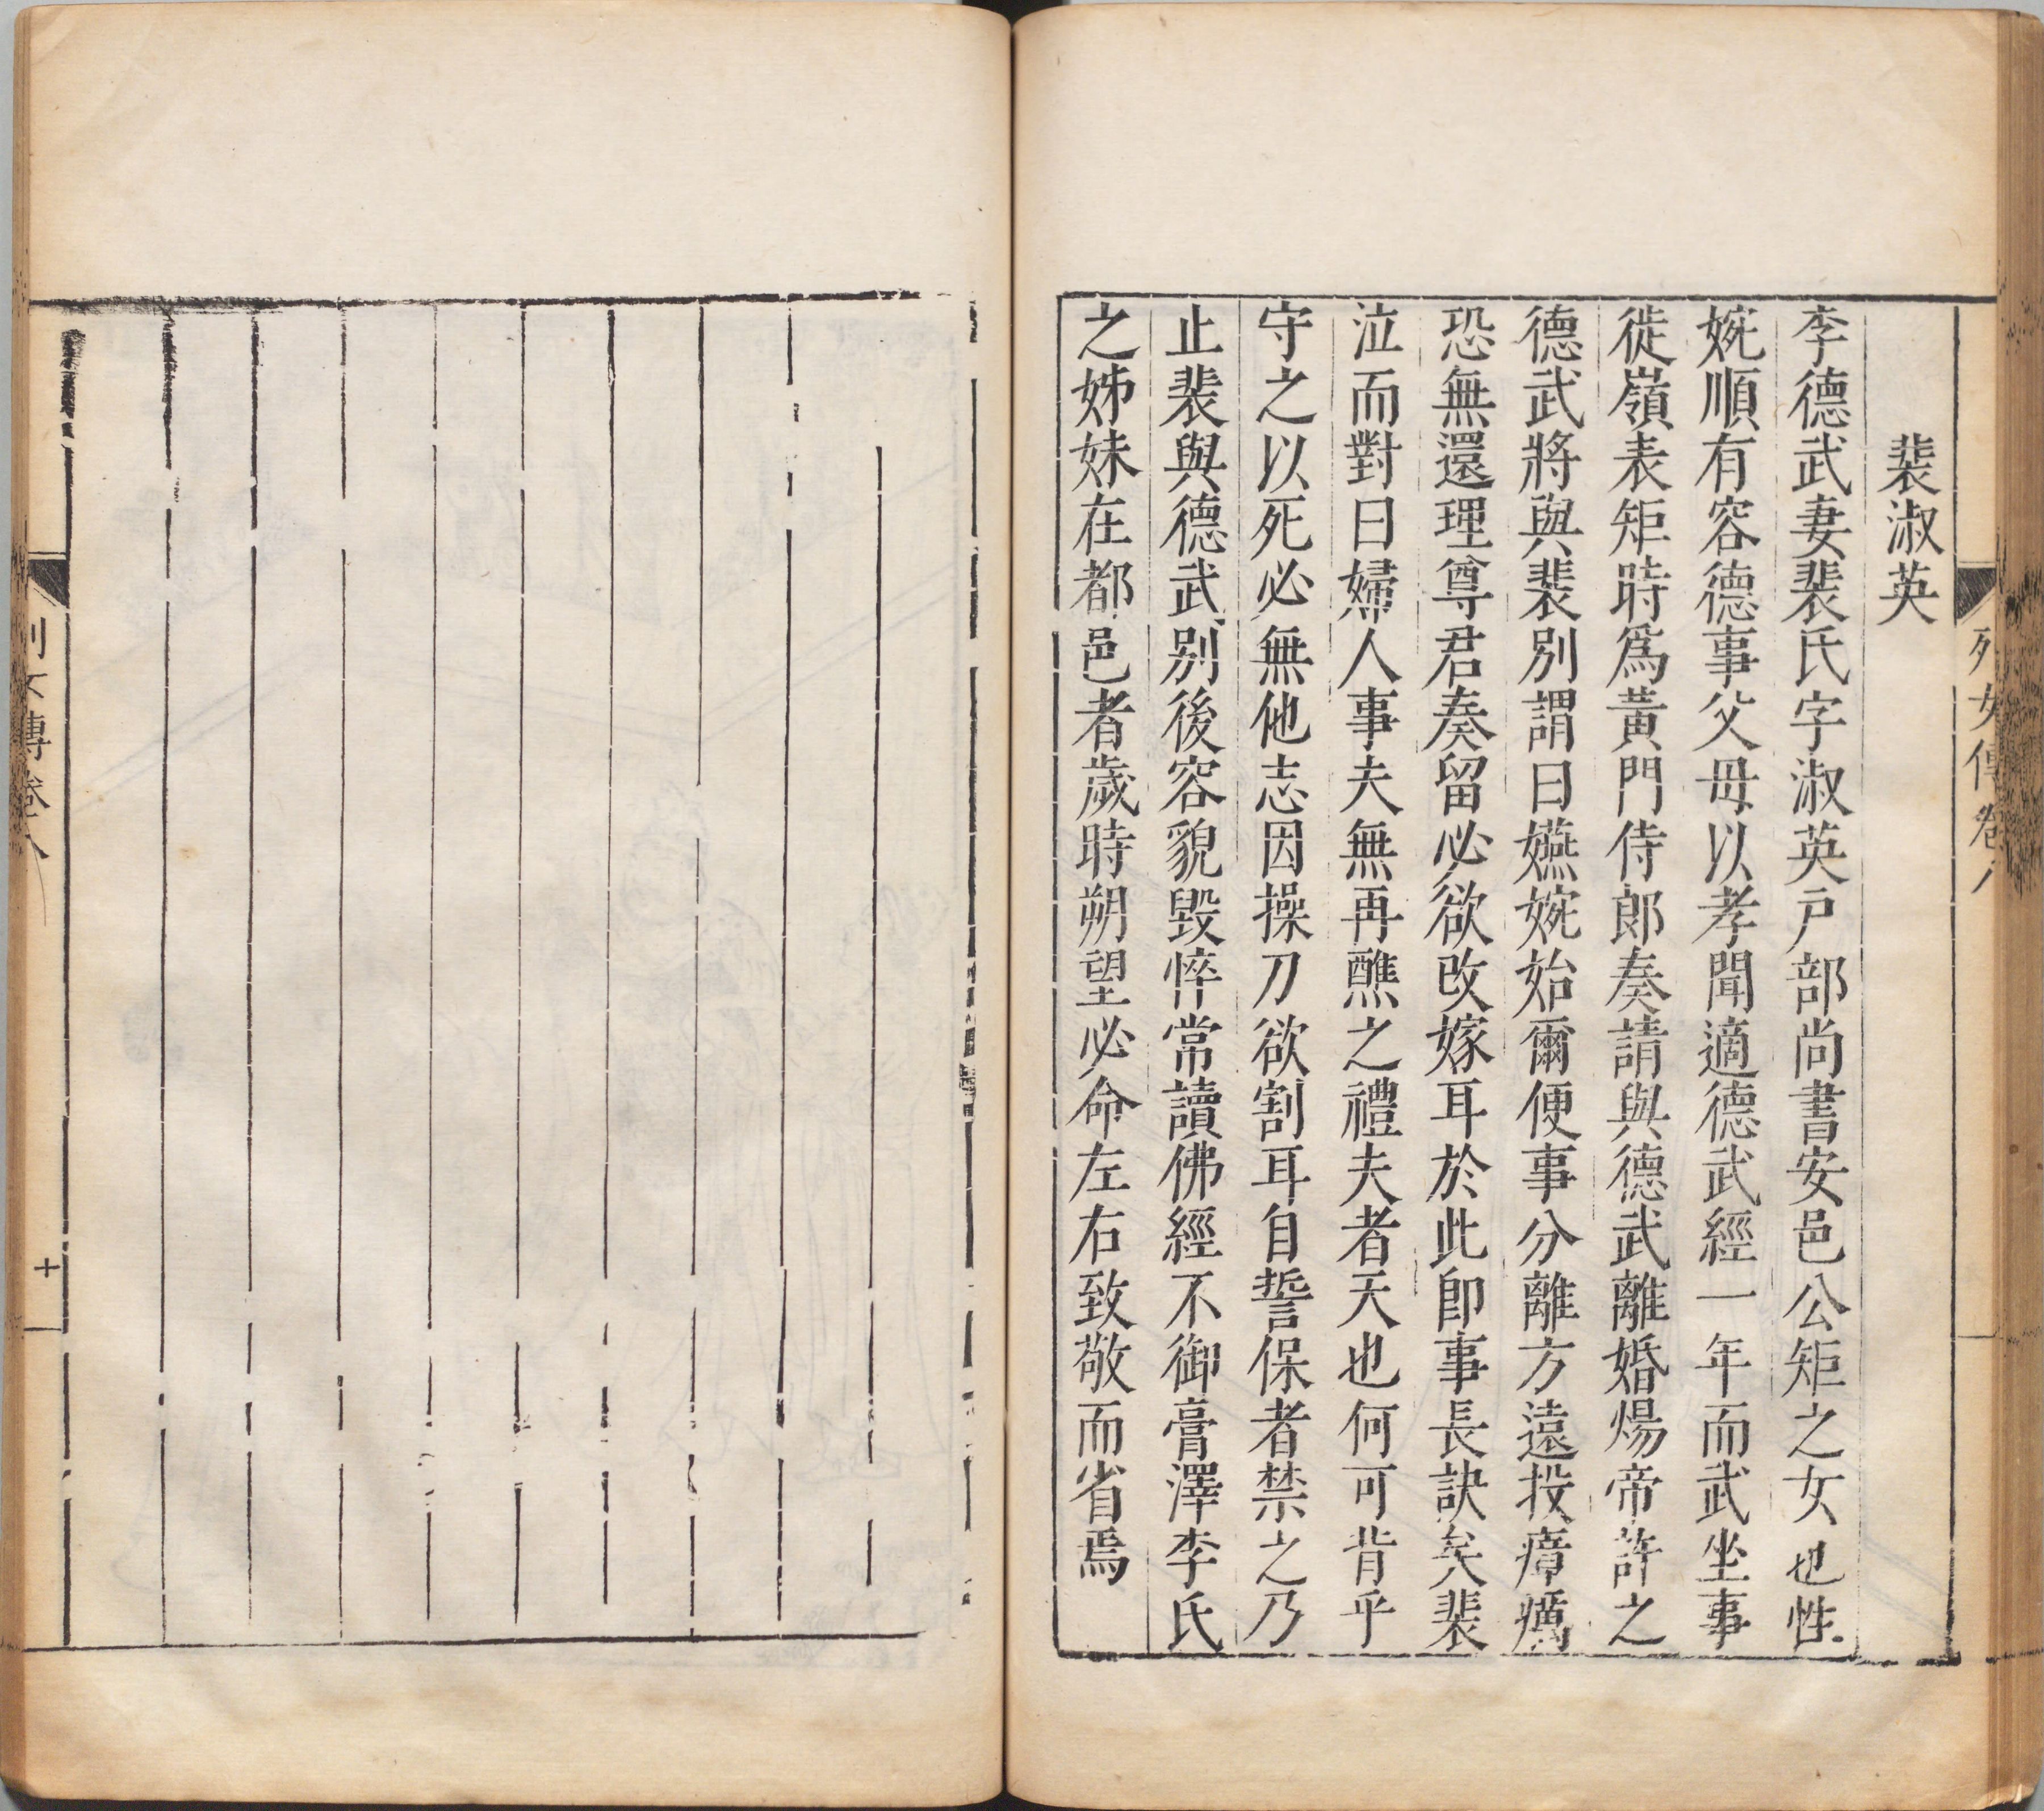 裴淑英
李德武妻裴氏字淑英戸部尚書安邑公矩之女也性
婉順有容德事父母以孝聞適德武經一年而武坐事
徙嶺表矩時爲黃門侍郎奏請與德武離婚煬帝許之
德武將與裴別謂曰嬿婉始爾便事分離方遠投瘴癘
恐無還理尊君奏留必欲改嫁耳於此卽事長訣矣裴
泣而對曰婦人事夫無再醮之禮夫者天也何可背乎
守之以死必無他志因操刀欲割耳自誓保者禁之乃
止裴與德武別後容貌毀悴常讀佛經不御膏澤李氏
之姊妹在都邑者歲時朔望必命左右致敬而省焉
列女傳卷八
列女傳卷八
十